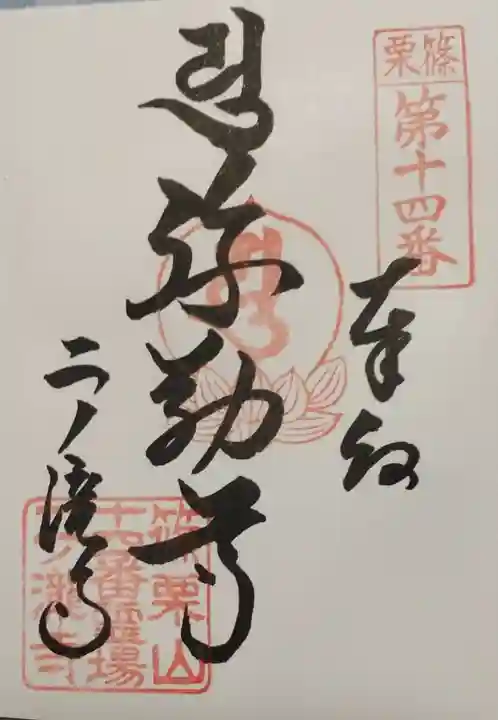 篠栗
第十四番
奉納
弥勒尊
二ノ滝寺
篠栗山
十四番霊場
二ノ瀧寺